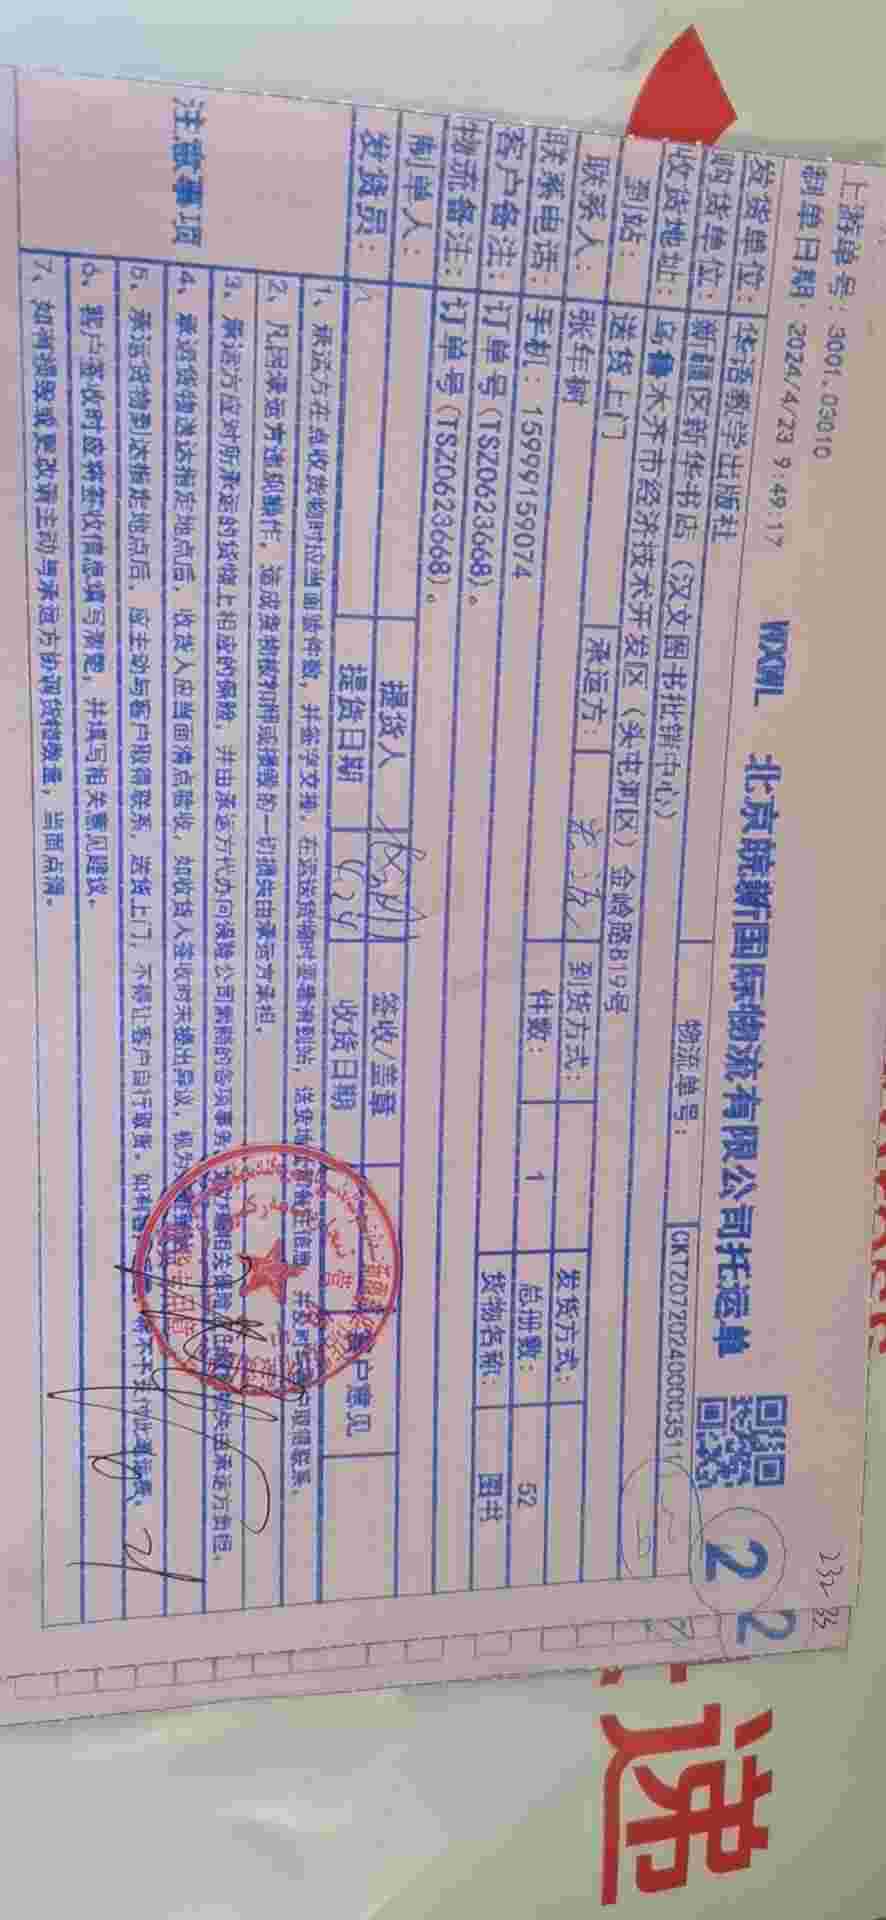 上游单号：3001.03010
制单日期：2024/4/23 9:49:17
WXWL 北京皖新国际物流有限公司托运单
2
2
232-33
发货单位：华语教学出版社
物流单号：CKTZ07202400003511
购货单位：新疆区新华书店（汉文图书批销中心）
收货地址：乌鲁木齐市经济技术开发区（头屯河区）金岭路819号
到站：送货上门 承运方： 到货方式： 发货方式：
联系人：张年树 件数：1 总册数：52
联系电话：手机：15999159074 货物名称：图书
客户备注：订单号(TSZ0623668)。
物流备注：订单号(TSZ0623668)。
制单人： 提货人 签收/盖章 客户意见
发货员： 提货日期 4.24 收货日期
注意事项
1、承运方在点收货物时应当面验件数，并签字交接，在运送货物时要看清到站，送货地
2、凡因承运方违规操作，造成货物被扣押或损毁的一切损失由承运方承担。
3、承运方应对所承运的货物上相应的保险，并由承运方代办向保险公司索赔的各项事务，
4、承运货物送达指定地点后，收货人应当面清点验收，如收货人签收时未提出异议，视为
5、承运货物到达指定地点后，应主动与客户取得联系，送货上门，不得让客户自行取货。
6、客户签收时应将签收信息填写清楚，并填写相关意见建议。
7、如有损毁或更改需主动与承运方协调货物数量，当面点清。
递